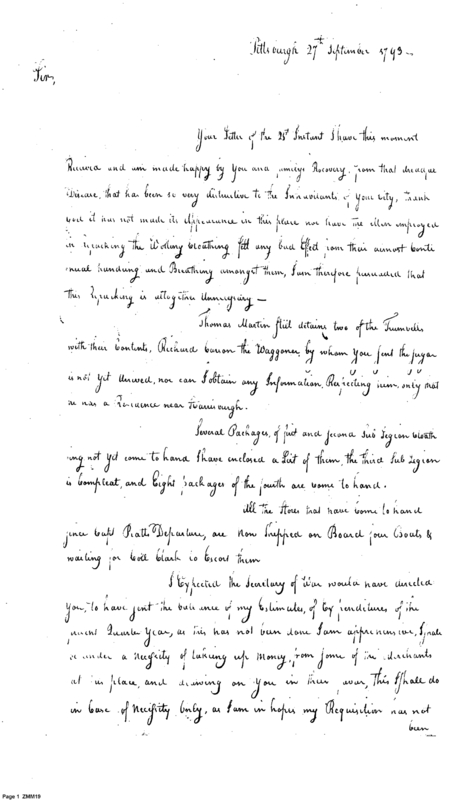 Pittsburgh 27th September 1793
Sir,
Your Letter of the 21st Instant I have this moment
Received and am made happy by Your and Familys Recovery, from that dreadful
Disease, that has been so very distructive to the Inhabitants of Your City, thank
God it has not made its appearance in this place nor have the Men employed
in Repacking the Woollen Cloathing felt any bad Effect from their almost Conti
nual handling and Breathing amongst them, I am therefore persuaded that
this Repacking is altogether Unnecessary —
Thomas Martin still detains two of the Trunnells
with their Contents, Richard the Waggoner, by whom You sent the sugar
is not Yet arrived, nor can I obtain any Information, Respecting him, only that
he has a Residence near
Several Packages, of first and second Sub Legion Cloath
ing not Yet come to hand I have enclosed a List of them, the third Sub Legion
is Compleat, and Eight packages of the fourth are come to hand.
All the Stores that have Come to hand
since Capt Pratts Departure, are now Shipped on Board four Boats &
waiting for Coll Clark to Escort them
I Expected the Secretary of War would have directed
You, to have sent the ballance of my Estimates, of Expenditures of the
present Quarter Year, as this has not been done I am apprehensive, I shall
be under a Necessity of taking up Money, from some of the Merchants
at this place, and drawing on You in their favor, This I shall do
in Case of Necessity Only, as I am in hopes my Requisition has not
been
Page 1 ZMM19